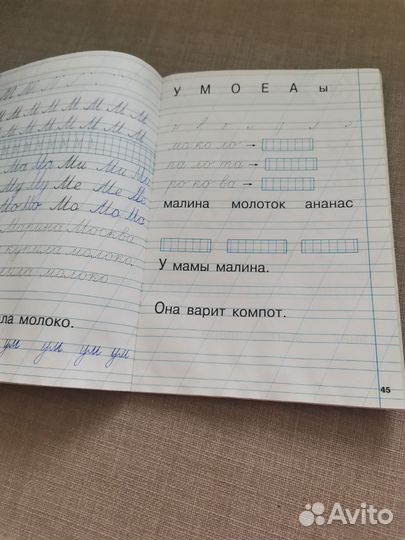 М М М
М М М М М М М
М М М М М М М
Ма Ма Ми Ми Мо
Му Му Ме Ме Ме
Мо Мо Мо Мо Мо
Марина Москва
купила молоко.
ила молоко
ла молоко.
ум ум ум ум
У М О Е А ы
мо ко ло →
па ло та →
ро ко ва →
малина молоток ананас
У мамы малина.
Она варит компот.
45
Avito